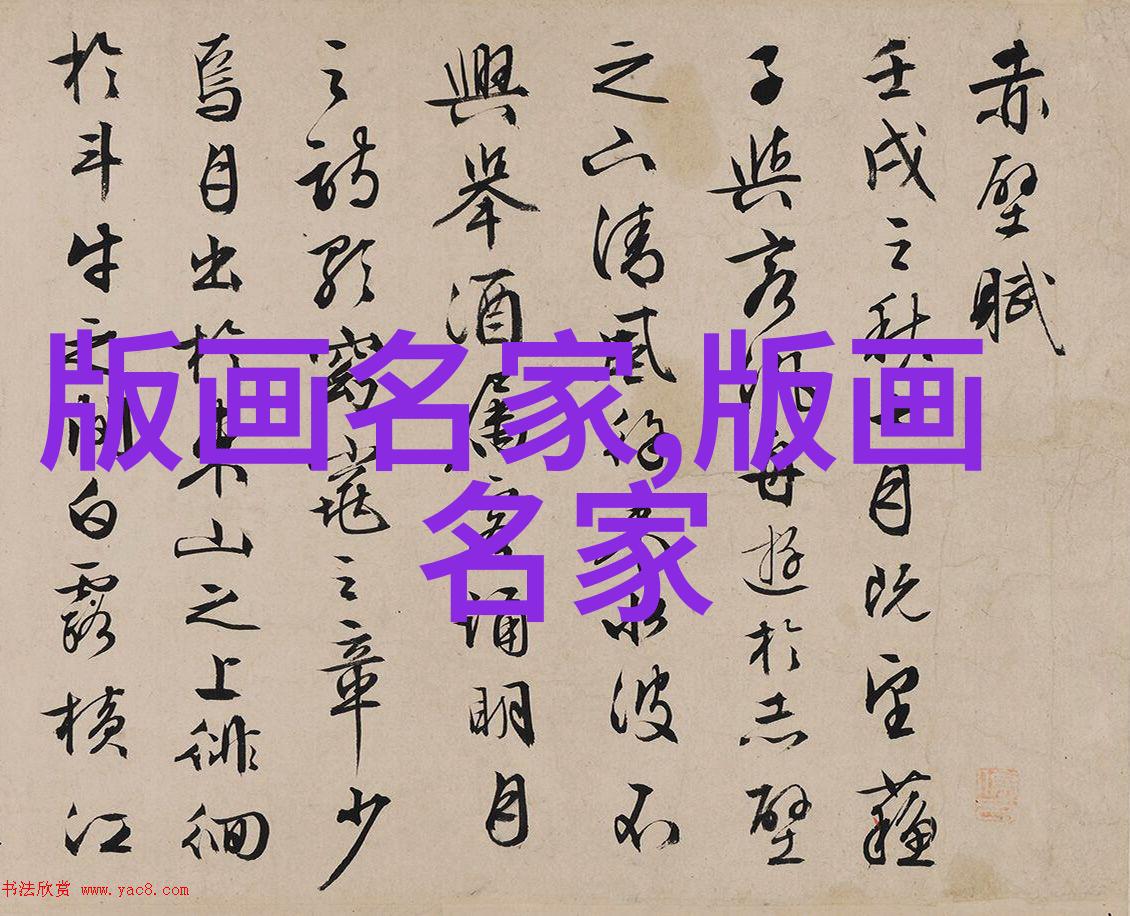 赤壁賦
壬戌之秋七月既望蘓
子與客泛舟遊於赤壁
之下清風徐來水波不
興舉酒屬客誦明月
之詩歌窈窕之章少
焉月出於東山之上徘徊
於斗牛之間白露橫江
版画名家,版画
名家
书法欣赏 www.yac8.com